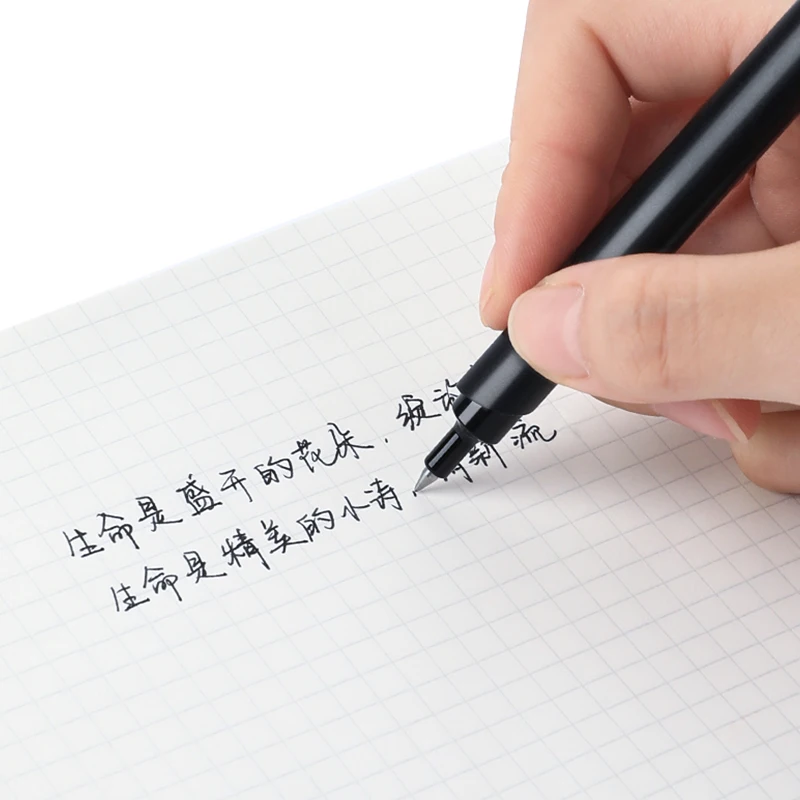 生命是盛开的花朵，绽
生命是精美的小诗，清新流